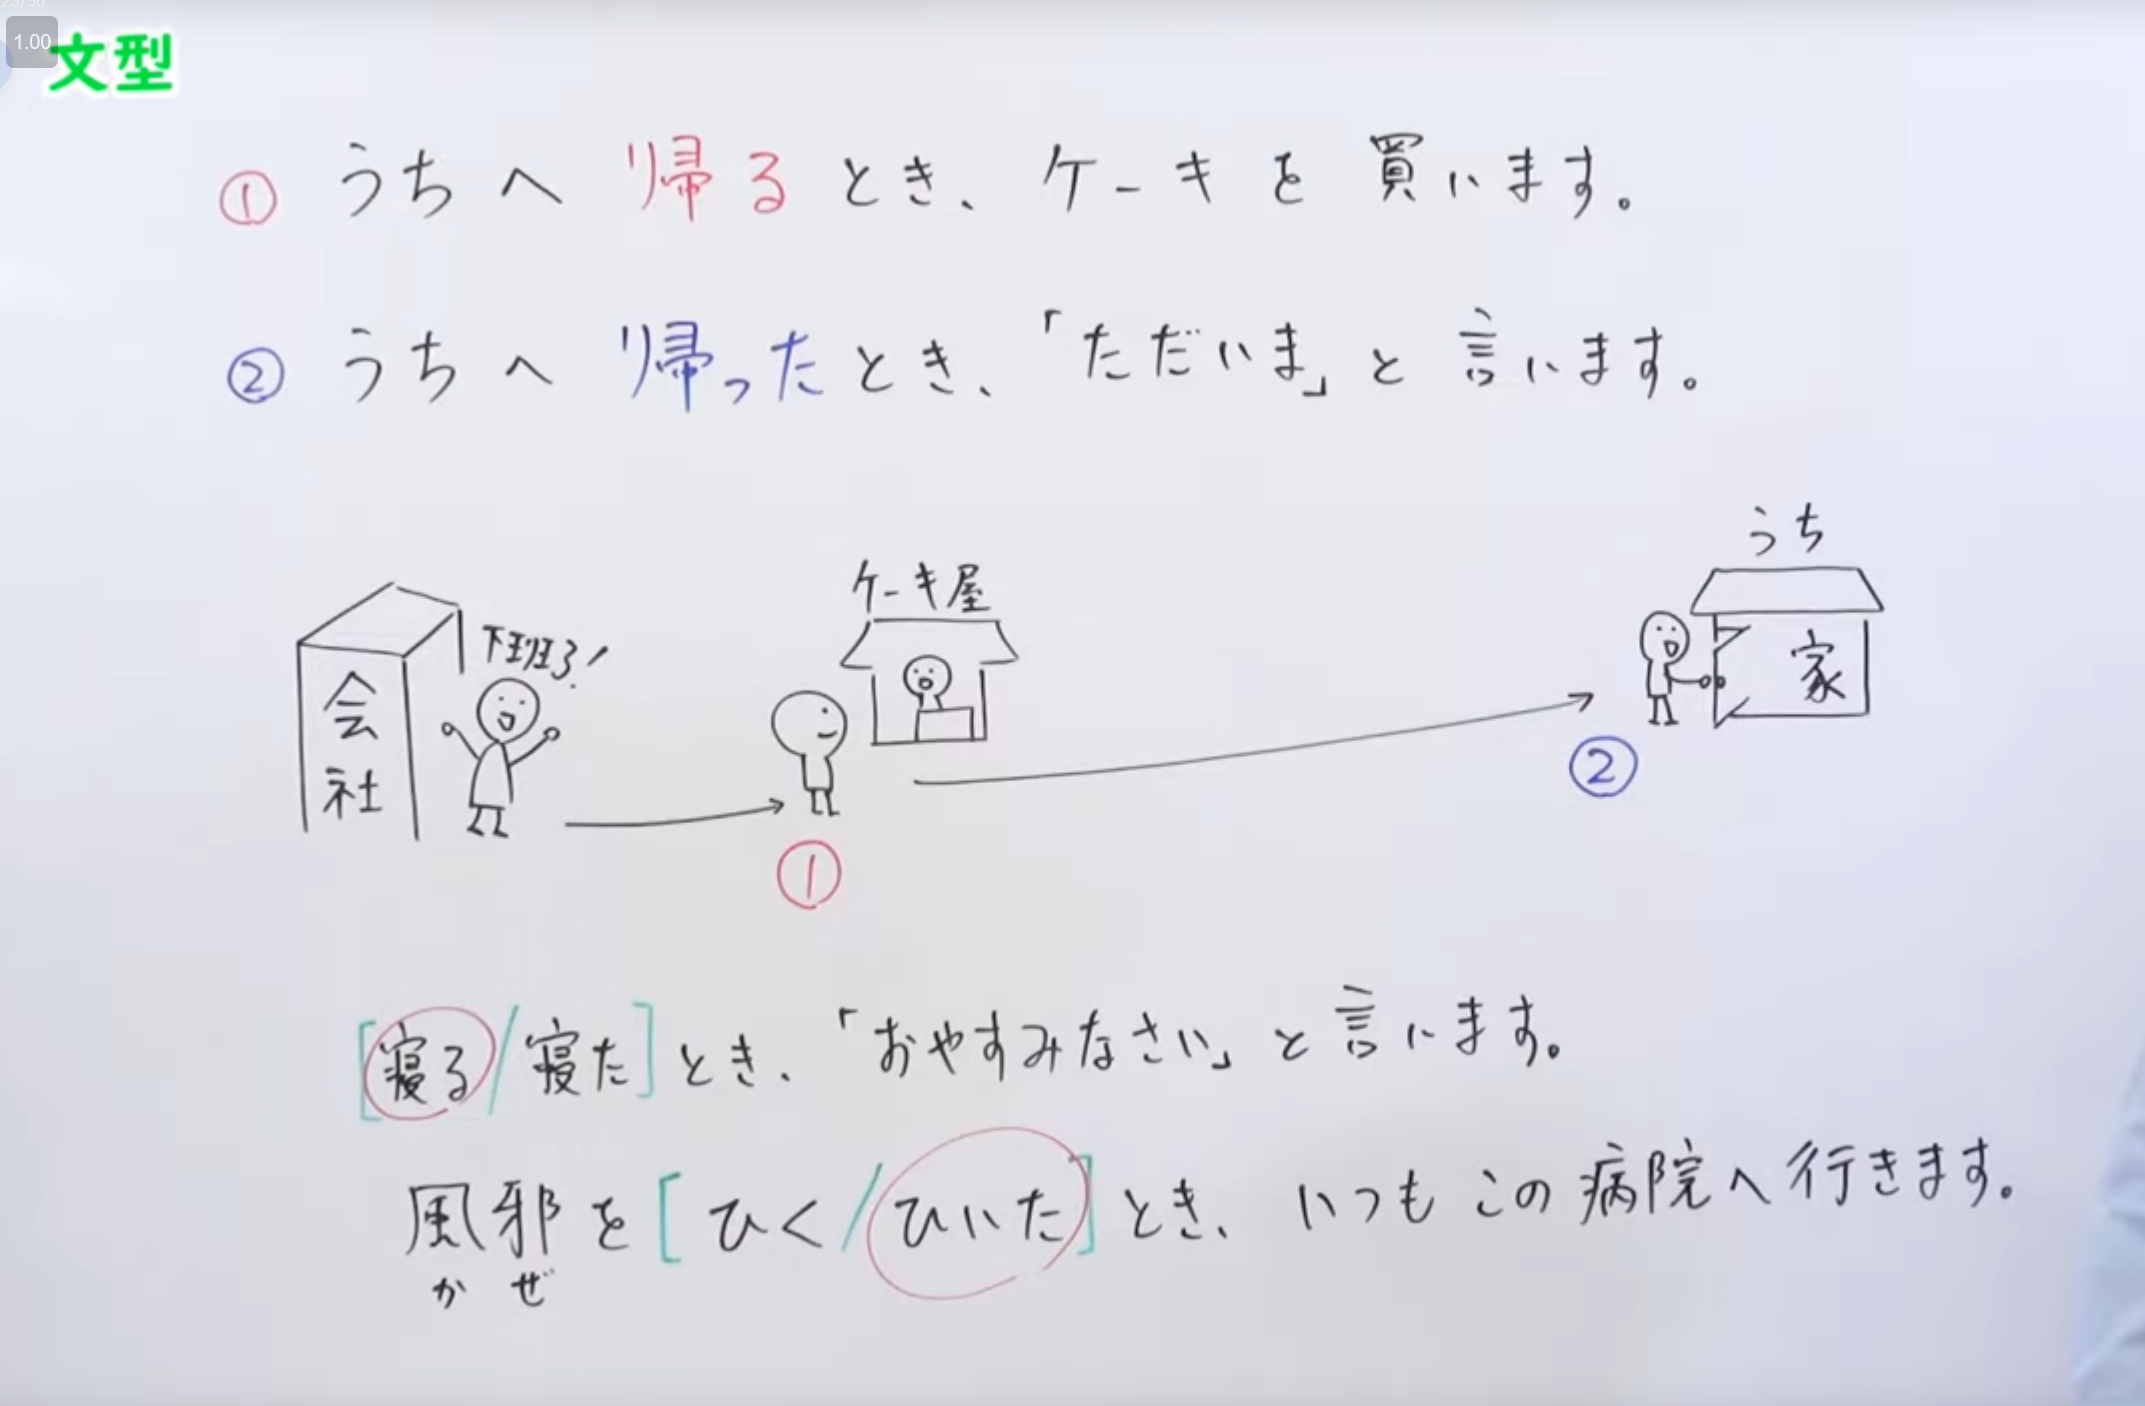 23/50
1.00
文型
① うちへ 帰るとき、ケーキを買います。
② うちへ 帰ったとき、「ただいま」と言います。
うち
ケーキ屋
下班了!
会社
家
①
②
[寝る/寝た]とき、「おやすみなさい」と言います。
風邪を[ひく/ひいた]とき、いつもこの病院へ行きます。
かぜ